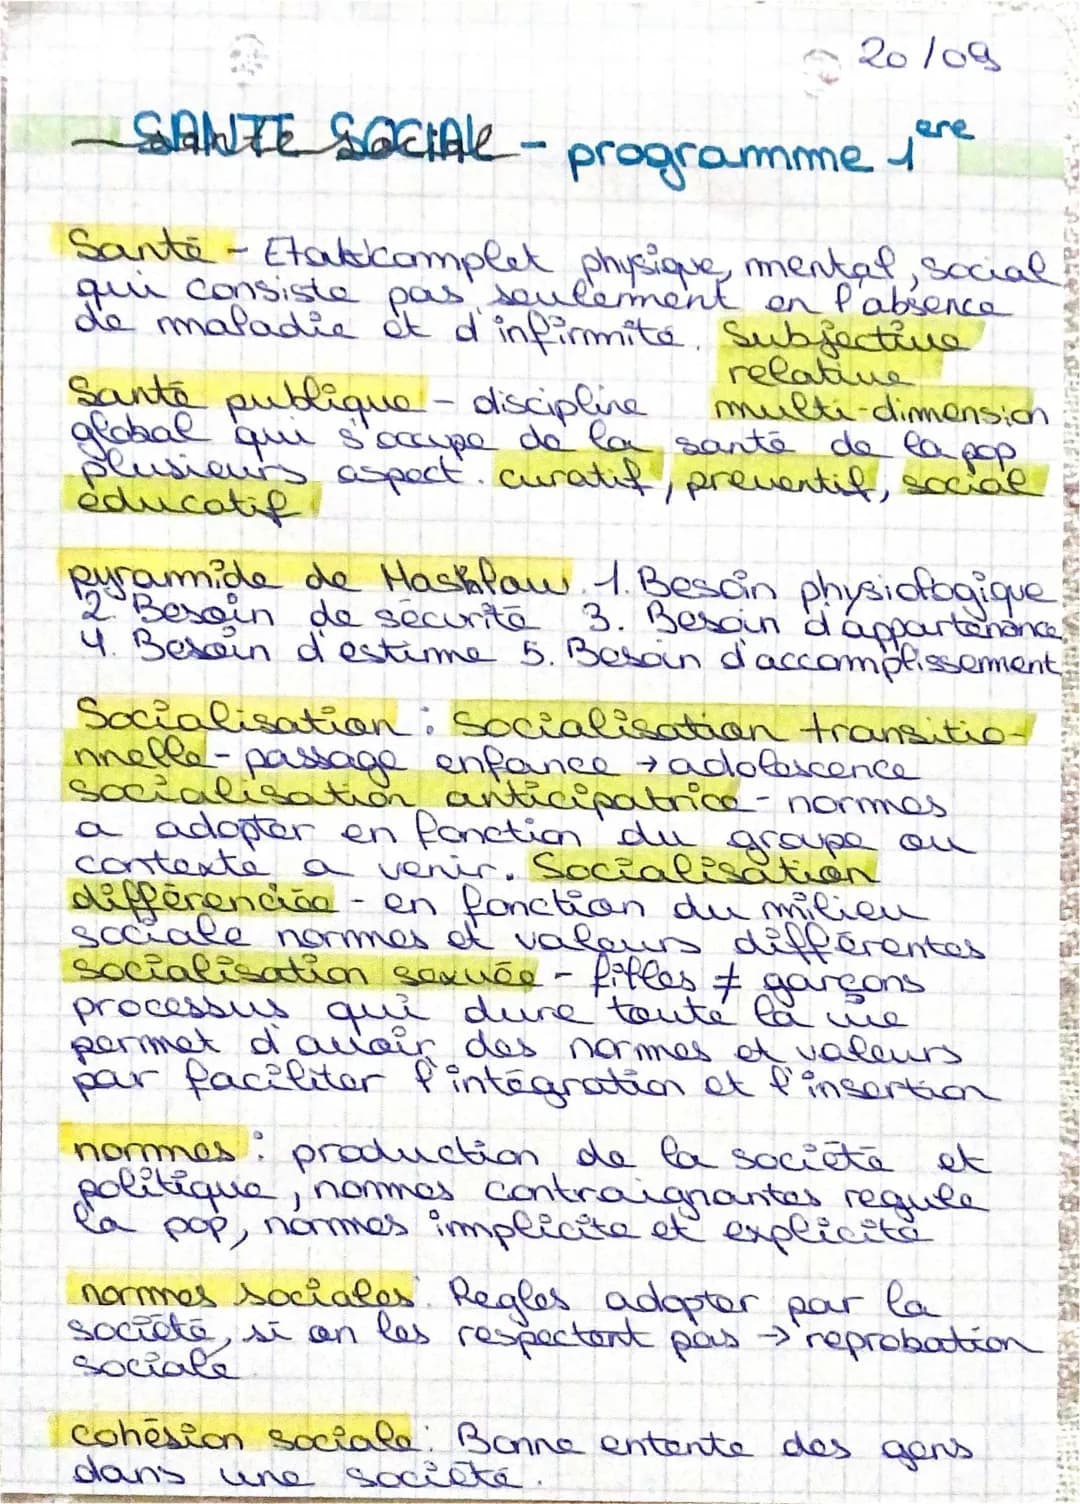 20/09
SANTE SOCIALE - programme 1ere
Santé - Etat complet physique, mental, social
qui consiste pas seulement en l'absence
de maladie et d'infirmité. Subjective
relative
Santé publique - discipline multi-dimension
global qui s'occupe de la santé de la pop
plusieurs aspect. curatif, preventif, social
éducatif
pyramide de Mashlow. 1. Besoin physiologique
2. Besoin de sécurité 3. Besoin d'appartenance
4. Besoin d'estime 5. Besoin d'accomplissement
Socialisation : Socialisation transitio-
nnelle - passage enfance → adolescence
Socialisation anticipatrice - normes
a adopter en fonction du groupe ou
contexte a venir. Socialisation
différenciée - en fonction du milieu
sociale normes et valeurs différentes
socialisation sexuée - filles ≠ garçons
processus qui dure toute la vie
permet d'avoir des normes et valeurs
par faciliter l'intégration et l'insertion
normes : production de la société et
politique, normes contraignantes regule
la pop, normes implicite et explicité
normes sociales : Regles adopter par la
société, si on les respectent pas → reprobation
sociale
cohésion sociale : Bonne entente des gens
dans une société.